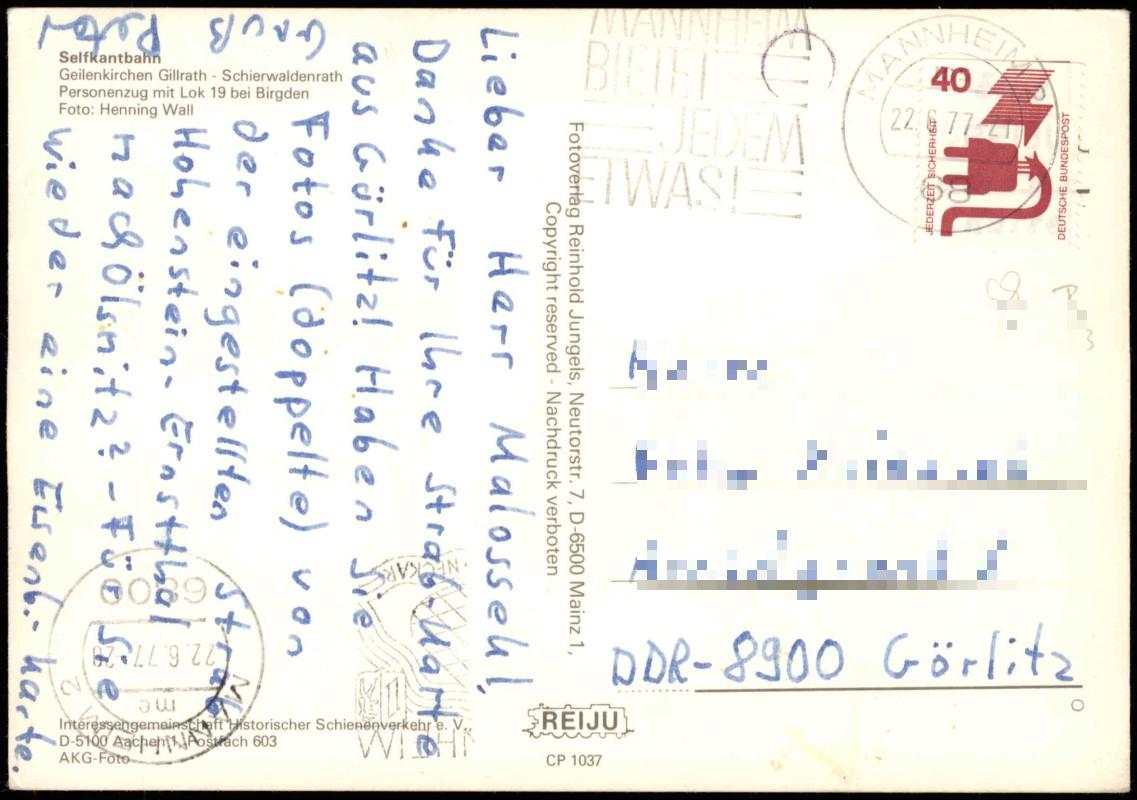 Selfkantbahn
Geilenkirchen Gillrath - Schierwaldenrath
Personenzug mit Lok 19 bei Birgden
Foto: Henning Wall
Lieber Herr Malossek!
Danke für Ihre Strab-Karte
aus Görlitz! Haben Sie
Fotos (doppelte) von
der eingestellten Strab
Hohenstein-Ernstthal
nach Ölsnitz? - Für Sie
wieder eine Eisenb.-karte.
Gruß
Fotoverlag Reinhold Jungels, Neutorstr. 7, D-6500 Mainz 1,
Copyright reserved - Nachdruck verboten
MANNHEIM
BIETET
JEDEM
ETWAS!
MANNHEIM
22.6.77-21
68
40
JEDERZEIT SICHERHEIT
DEUTSCHE BUNDESPOST
DDR-8900 Görlitz
6800
22.6.77-20
me
MANNHEIM 2
NECKAR
Interessengemeinschaft Historischer Schienenverkehr e. V.
D-5100 Aachen 1, Postfach 603
AKG-Foto
REIJU
CP 1037